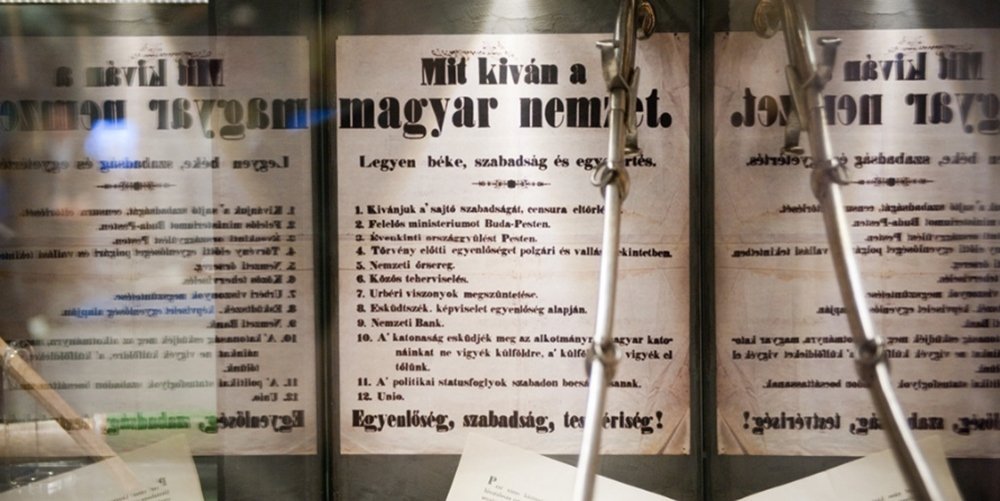 Mit kiván a
magyar nemzet.
Legyen béke, szabadság és egyetértés.
1. Kivánjuk a' sajtó szabadságát, censura eltörlését.
2. Felelős ministeriumot Buda-Pesten.
3. Évenkinti országgyülést Pesten.
4. Törvény előtti egyenlőséget polgári és vallási tekintetben.
5. Nemzeti őrsereg.
6. Közös teherviselés.
7. Urbéri viszonyok megszüntetése.
8. Esküdtszék. képviselet egyenlőség alapján.
9. Nemzeti Bank.
10. A' katonaság esküdjék meg az alkotmányra, magyar kato-
náinkat ne vigyék külföldre, a' külföldieket vigyék el
tőlünk.
11. A' politikai statusfoglyok szabadon bocsáttassanak.
12. Unio.
Egyenlőség, szabadság, testvériség!